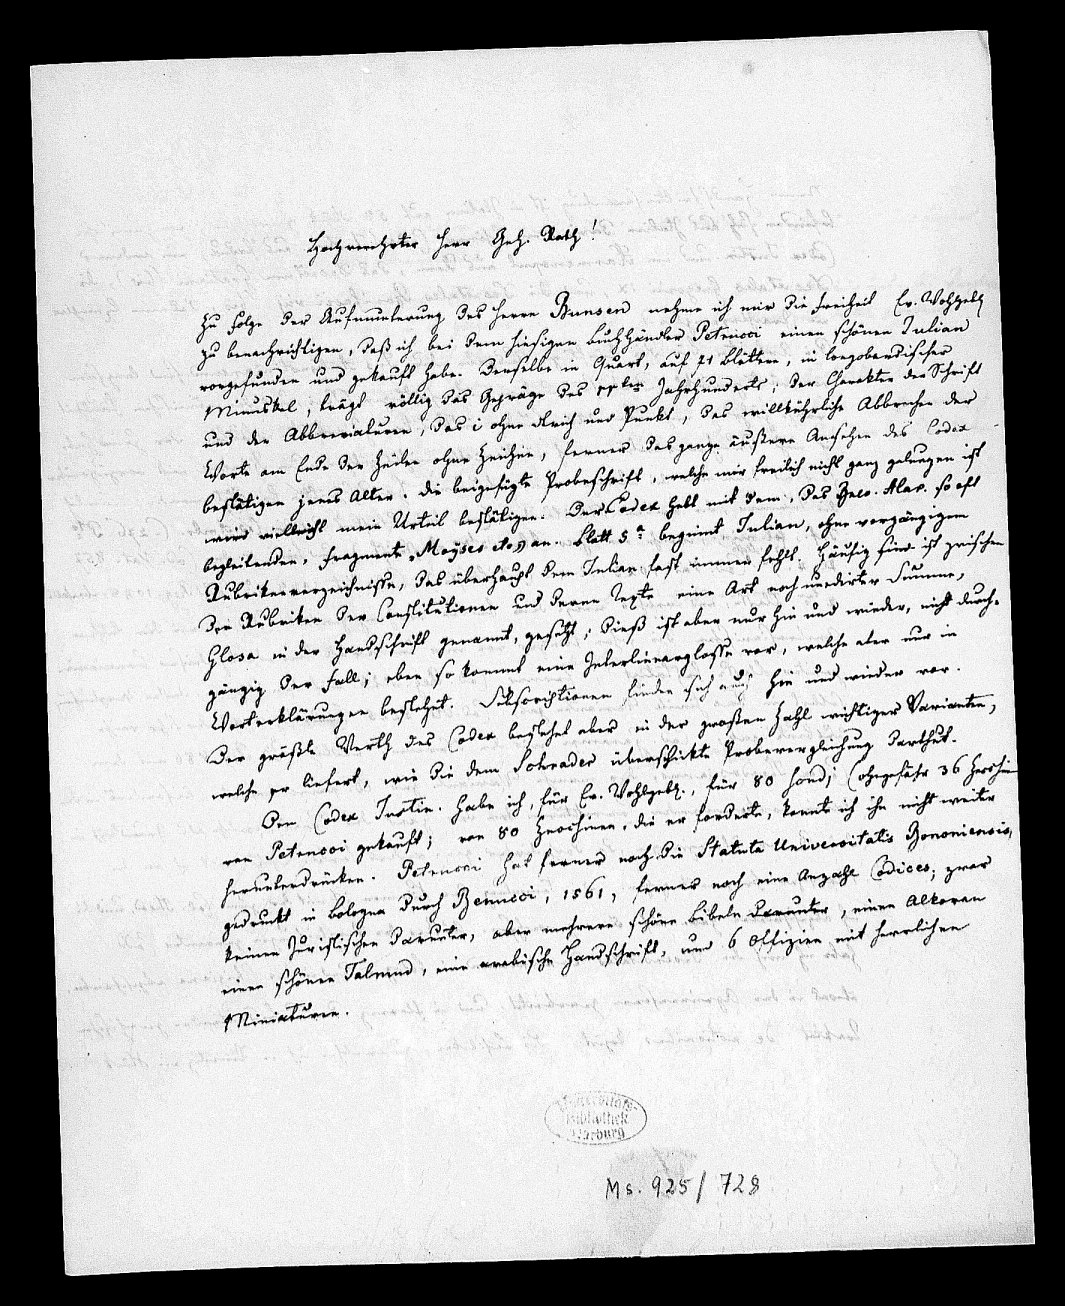 Hochverehrter Herr Geh. Rath!
Zu Folge der Aufmunterung des Herrn Bunsen nehme ich mir die Freiheit Ew. Wohlgeb.
zu benachrichtigen, daß ich bei dem hiesigen Buchhändler Petrucci einen schönen Julian
vorgefunden und gekauft habe. Derselbe in Quart, auf 71 Blättern, in longobardischer
Minuskel, trägt völlig das Gepräge des 11ten Jahrhunderts; der Charakter der Schrift
und der Abbreviaturen, das i ohne Strich und Punkt, das willkührliche Abbrechen der
Worte am Ende der Zeilen ohne Zeichen, ferner das ganze äußere Ansehen des Codex
bestätigen jenes Alter. Die beigefügte Probeschrift, welche mir freilich nicht ganz gelungen ist
wird vielleicht mein Urteil bestätigen. Der Codex hebt mit dem, das Brev. Alar. so oft
begleitenden, Fragment „Moyses etc" an. Blatt 5a beginnt Julian, ohne vorgängigem
Rubrikenverzeichnisse, das überhaupt dem Julian fast immer fehlt. Häufig ist zwischen
den Rubriken der Constitutionen und deren Texte eine Art noch unedirter Summe,
Glosa in der Handschrift genannt, gesetzt; dieß ist aber nur hin und wieder, nicht durch-
gängig der Fall; eben so kommt eine Interlinearglosse vor, welche aber nur in
Worterklärungen besteht. Subscriptionen finden sich auch hin und wieder vor.
Der größte Werth des Codex bestehet aber in der großen Zahl wichtiger Varianten,
welche er liefert, wie die dem Schrader überschickte Probevergleichung darthut.
Den Codex Justin. habe ich, für Ew. Wohlgeb., für 80 Scudi (ohngefähr 36 Zecchinen
von Petrucci gekauft; von 80 Zecchinen, die er forderte, konnte ich ihn nicht weiter
herunterdrücken. Petrucci hat ferner noch die Statuta Universitatis Bononiensis,
gedruckt in Bologna durch Benacci, 1561, ferner noch eine Anzahl Codices; zwar
keinen Juristischen darunter, aber mehrere schöne Bibeln darunter, einen Alkoran
einen schönen Talmud, eine arabische Handschrift, und 6 Offizien mit herrlichen
Miniaturen.
Universitäts-
Bibliothek
Marburg
Ms. 925/728